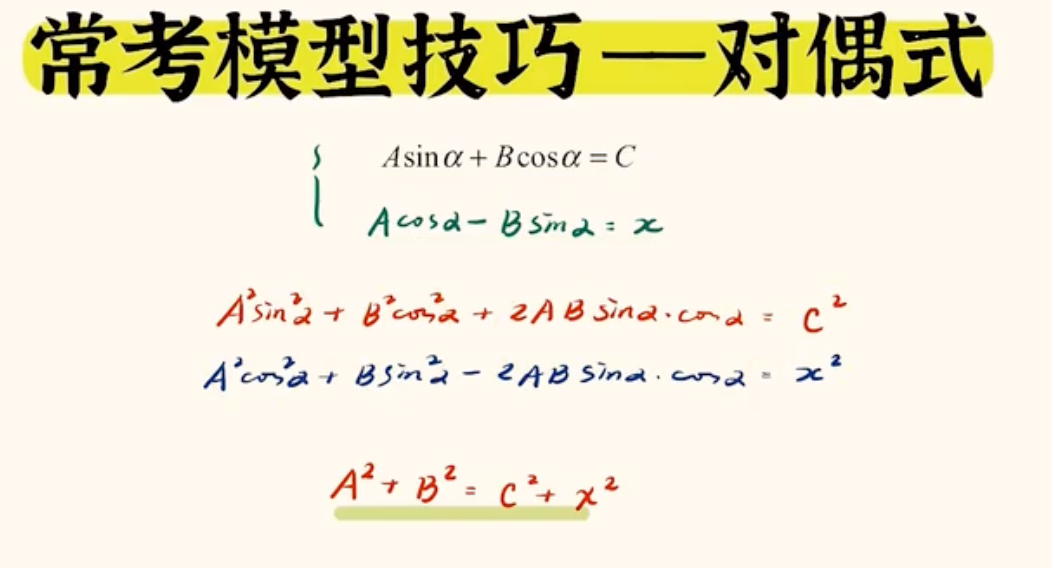 常考模型技巧——对偶式
Asinα + Bcosα = C
Acosα - Bsinα = x
A²sin²α + B²cos²α + 2ABsinα·cosα = C²
A²cos²α + Bsin²α - 2ABsinα·cosα = x²
A² + B² = C² + x²